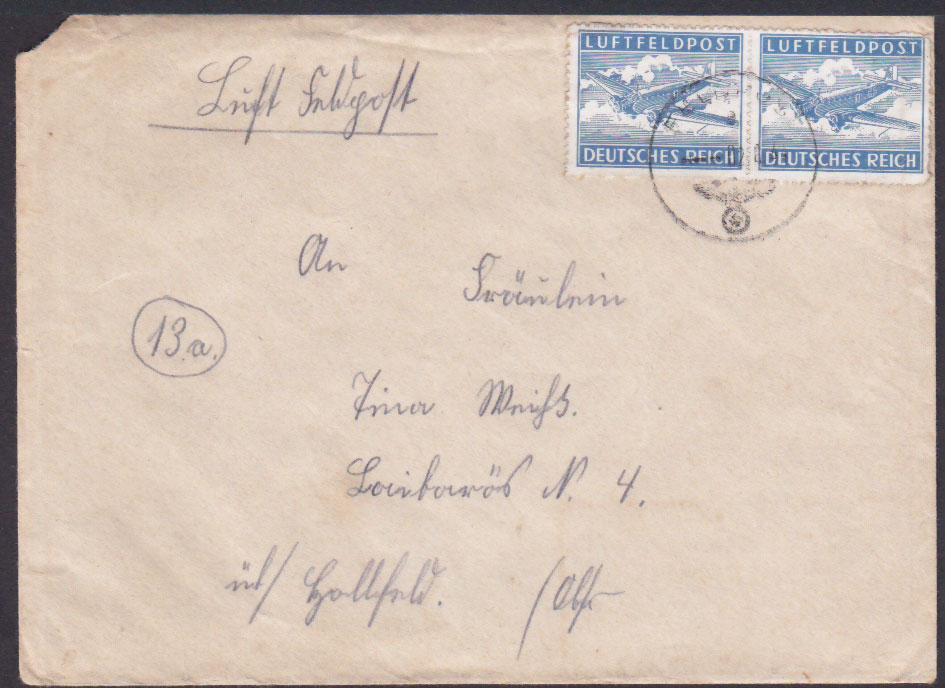 Luft Feldpost
LUFTFELDPOST
DEUTSCHES REICH
LUFTFELDPOST
DEUTSCHES REICH
An
Fräulein
13a.
Tina Weihß.
Laibarös N. 4.
üb/ Hollfeld. /Obfr